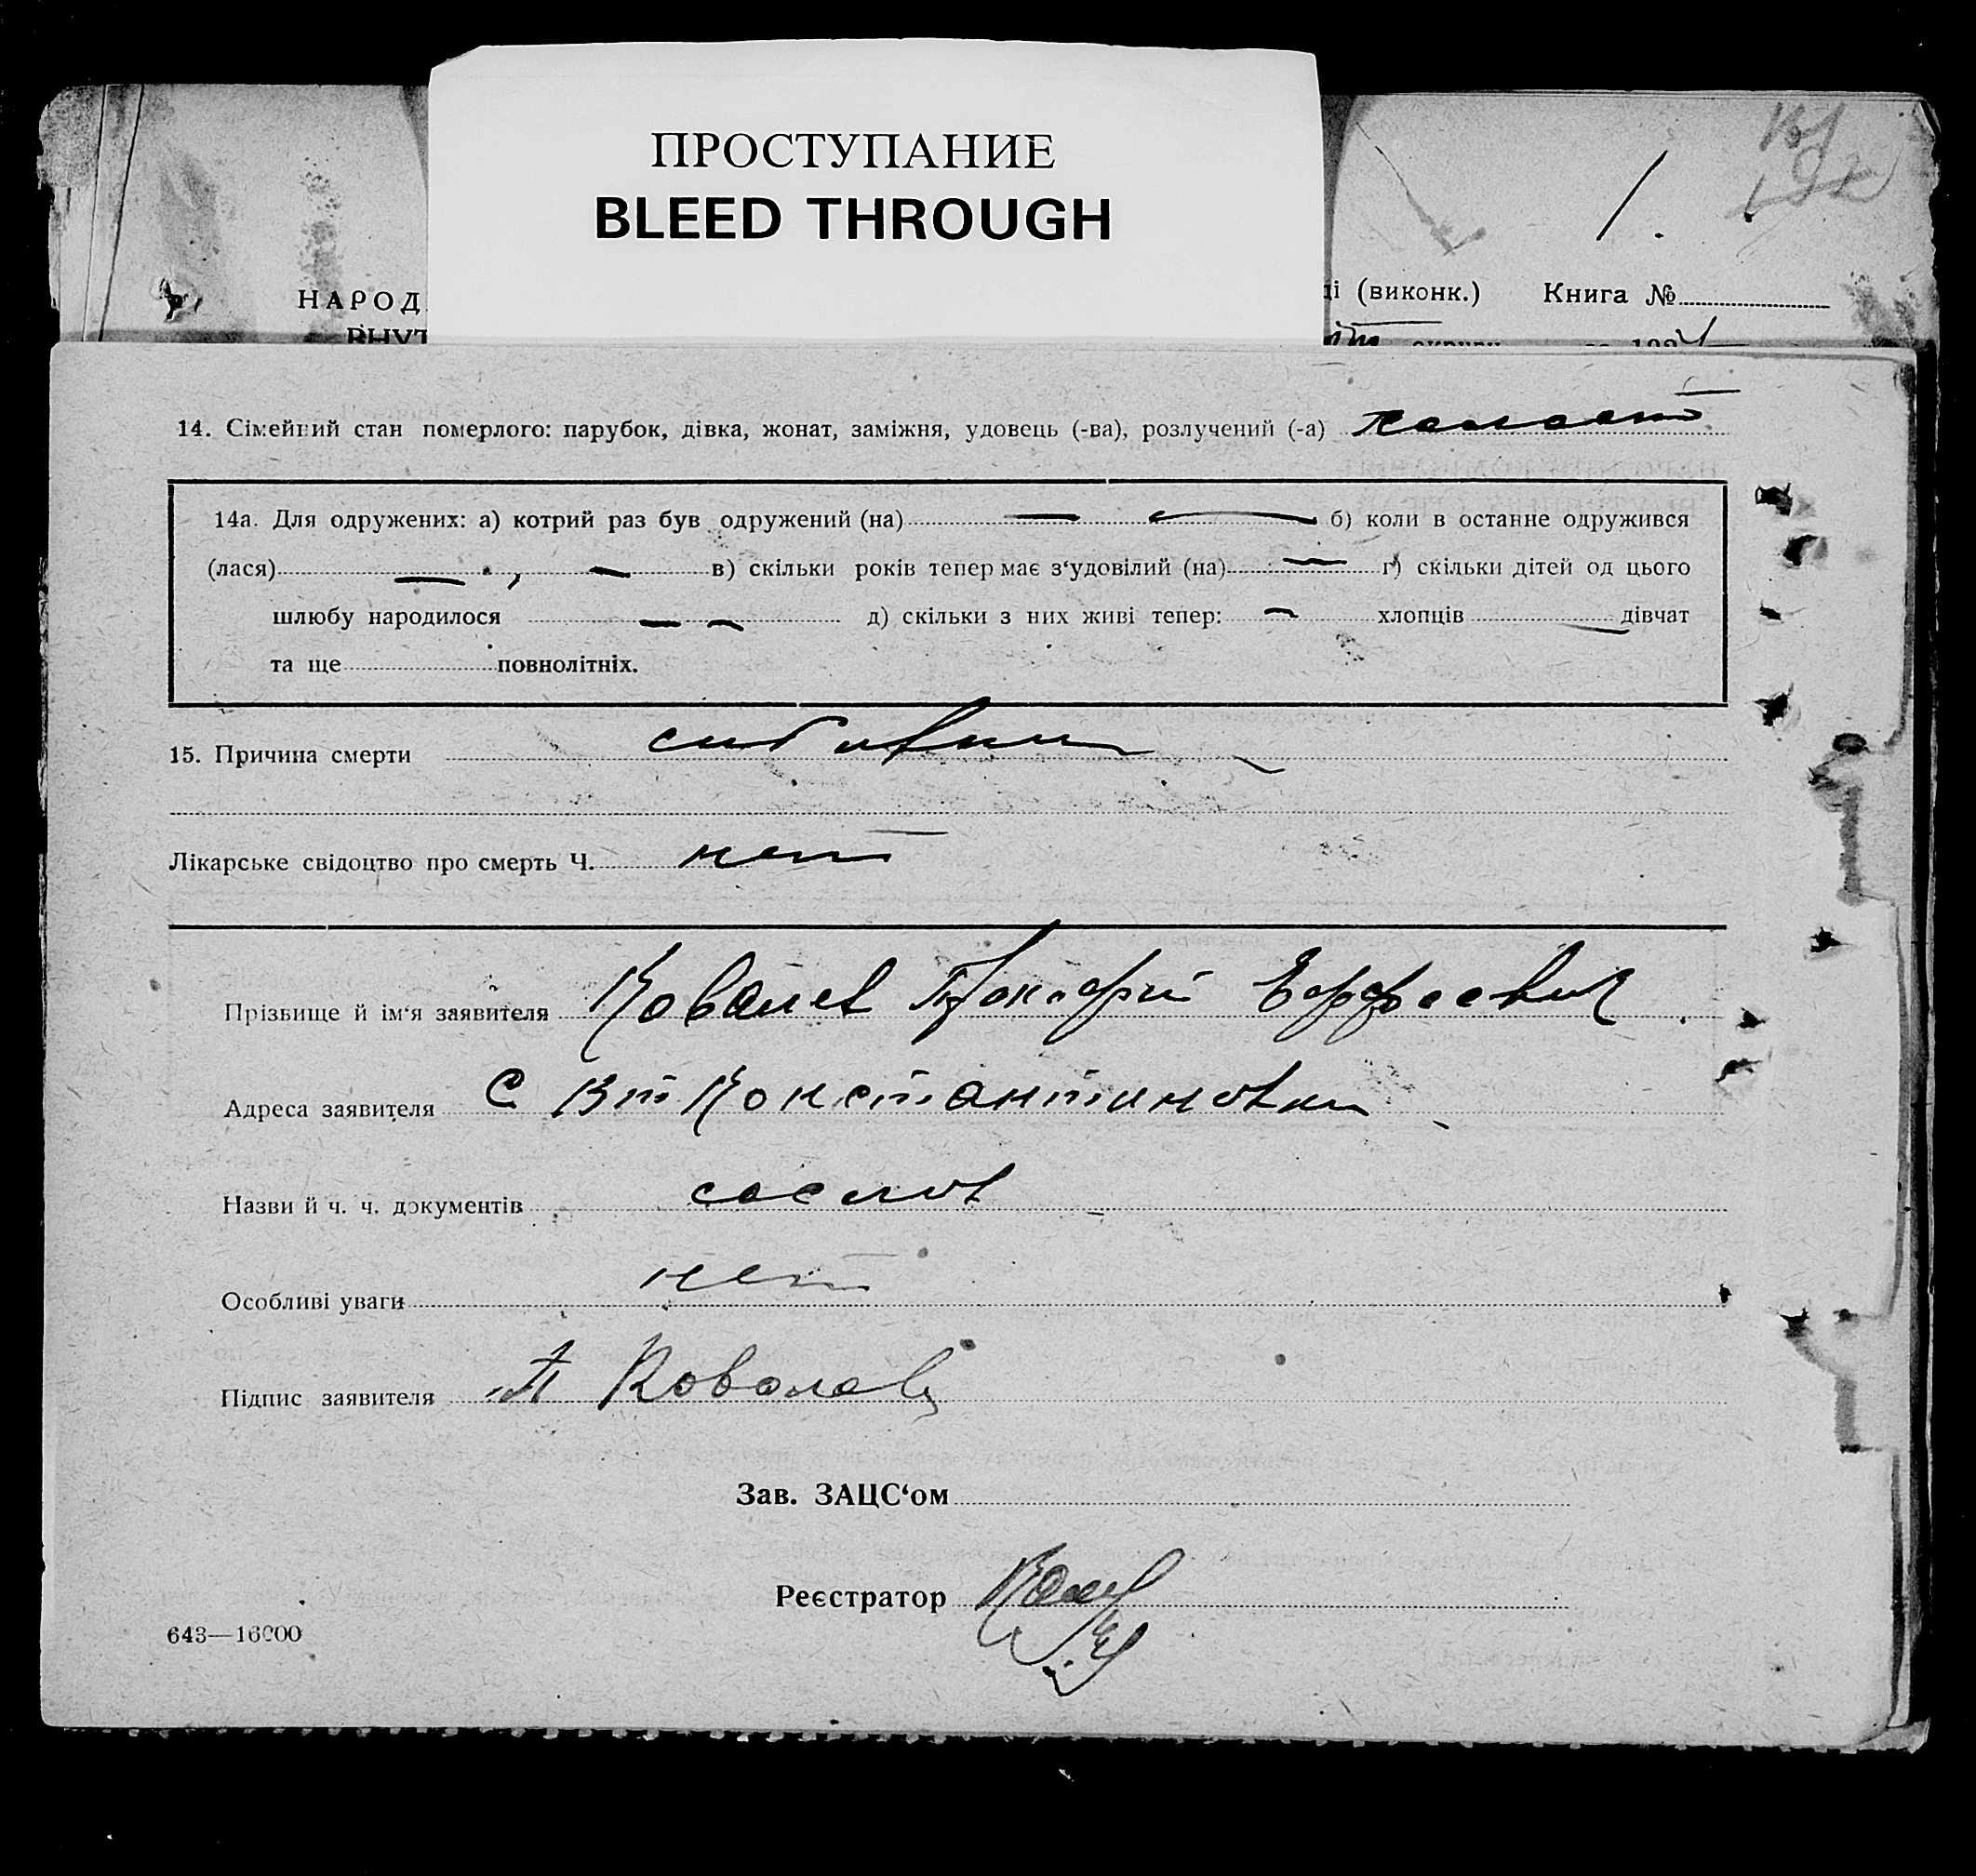 ПРОСТУПАНИЕ
BLEED THROUGH
1.
НАРОД
ді (виконк.) Книга №
14. Сімейний стан померлого: парубок, дівка, жонат, заміжня, удовець (-ва), розлучений (-а) холост
14а. Для одружених: а) котрий раз був одружений (на) — — б) коли в останне одружився
(лася) — — в) скільки років тепер має з‘удовілий (на) — г) скільки дітей од цього
шлюбу народилося — — д) скільки з них живі тепер: — хлопців — дівчат
та ще повнолітніх.
15. Причина смерти
Лікарське свідоцтво про смерть Ч. нет
Прізвище й ім‘я заявителя Ковалев Прокофий
Адреса заявителя С Вт Константиновки
Назви й ч. ч. документів
Особливі уваги нет
Підпис заявителя П Ковалев
Зав. ЗАЦС‘ом
Реєстратор
643—16000